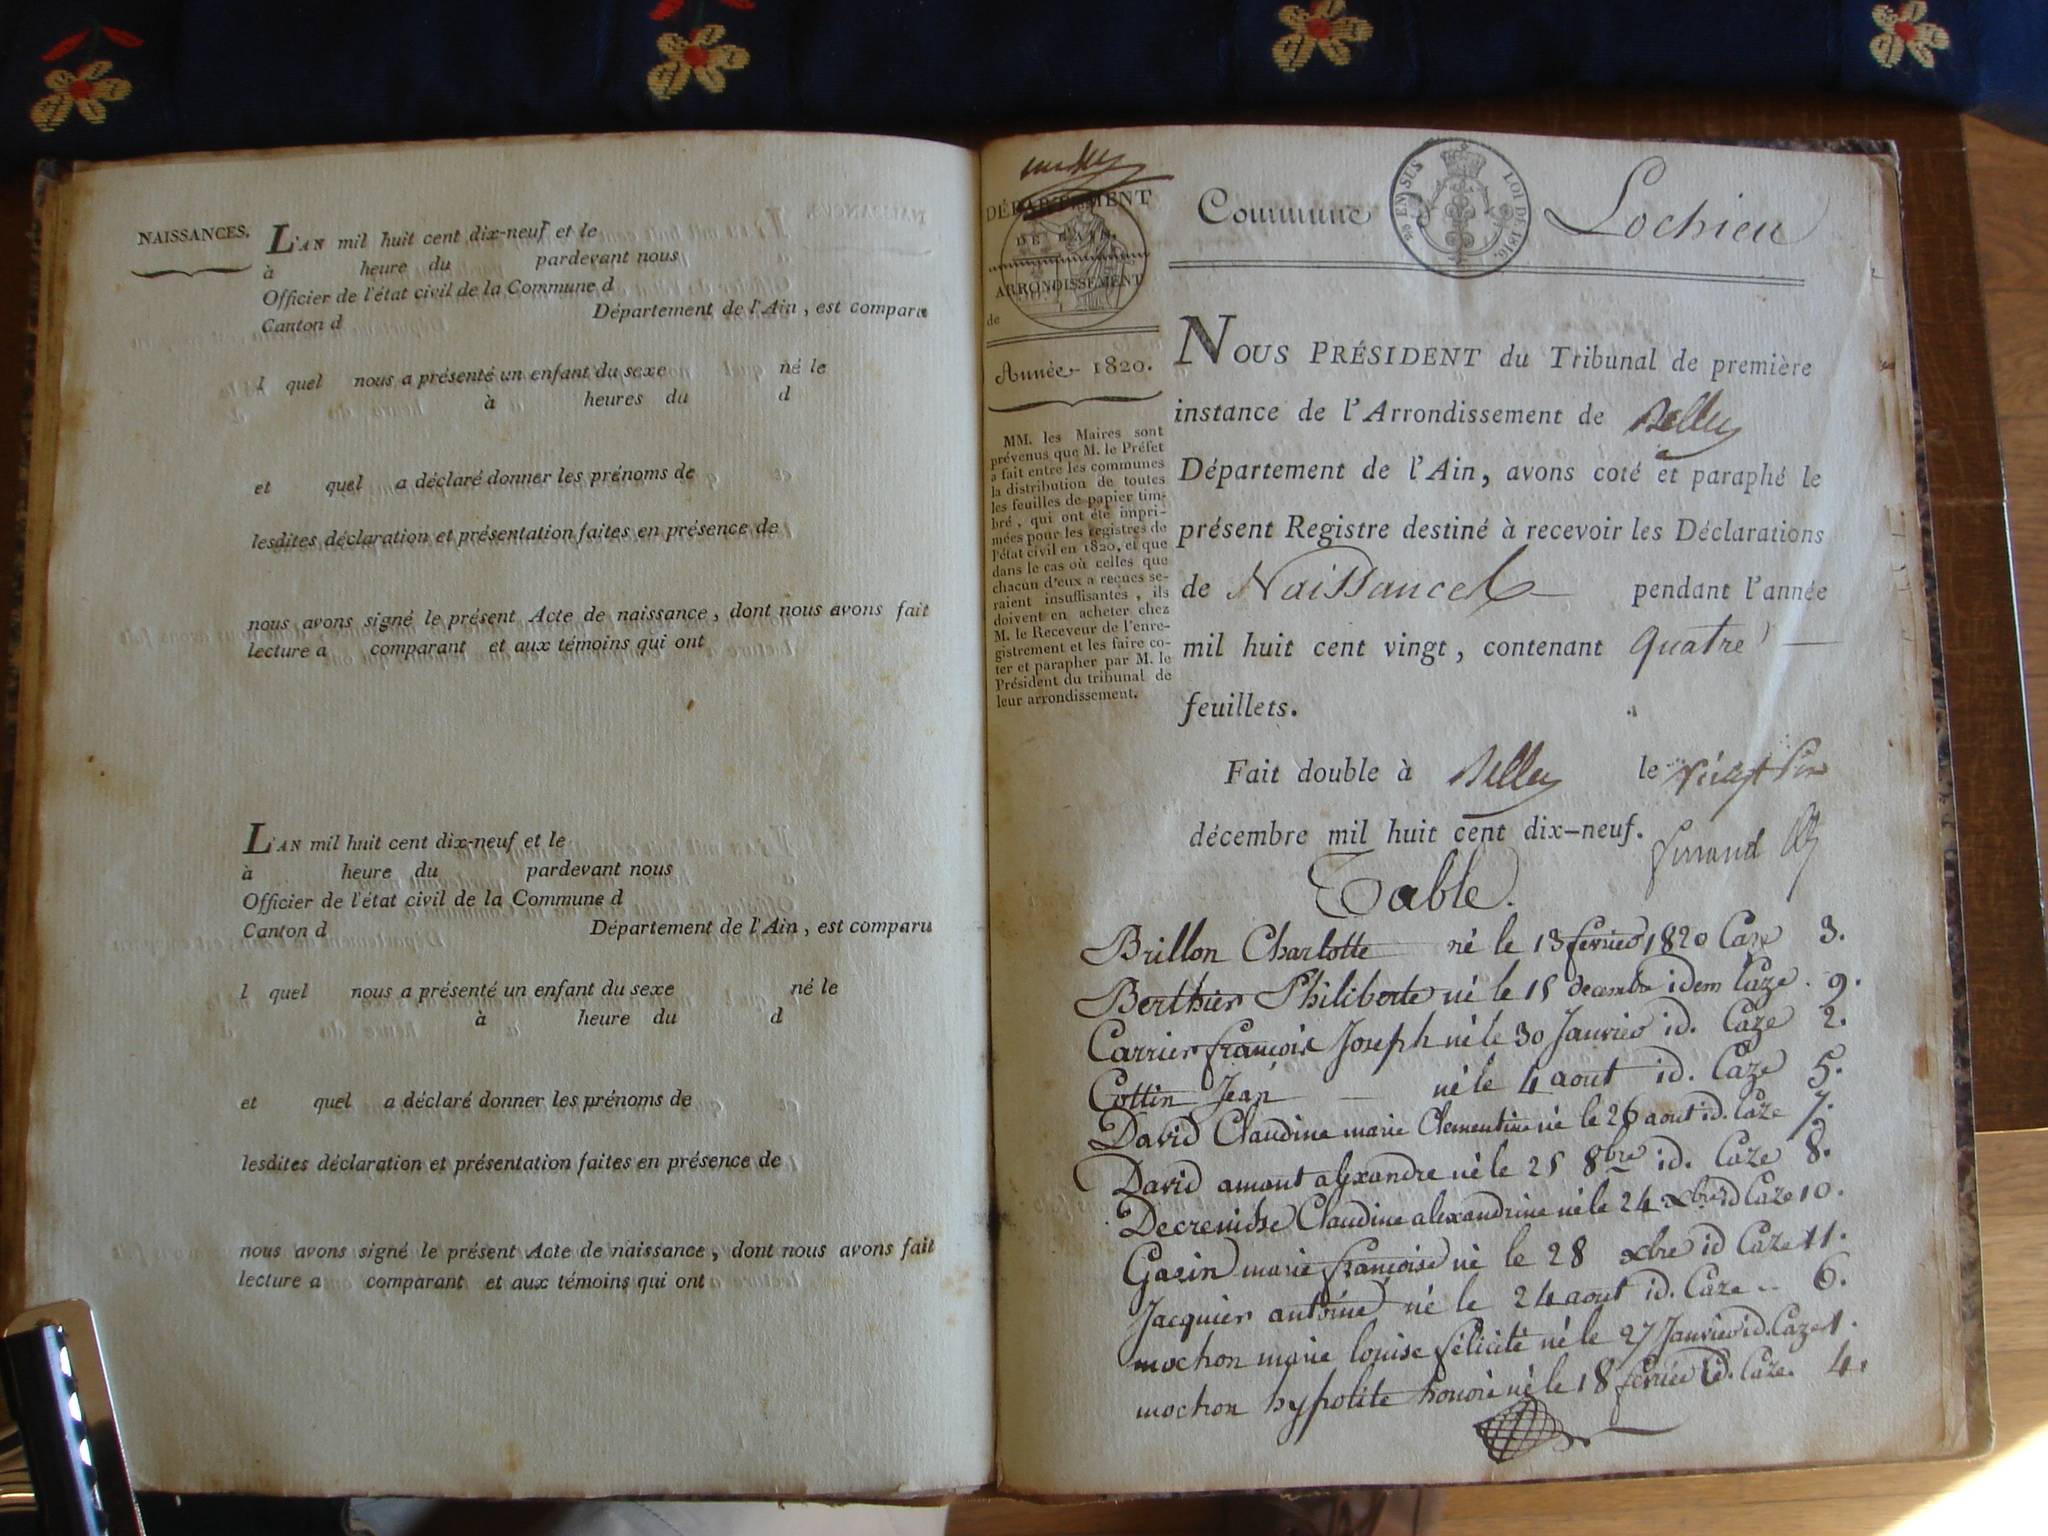 NAISSANCES.
L'AN mil huit cent dix-neuf et le
à heure du pardevant nous
Officier de l'état civil de la Commune d
Canton d Département de l'Ain, est comparu
l quel nous a présenté un enfant du sexe né le
à heures du d
et quel a déclaré donner les prénoms de
lesdites déclaration et présentation faites en présence de
nous avons signé le présent Acte de naissance, dont nous avons fait
lecture a comparant et aux témoins qui ont
L'AN mil huit cent dix-neuf et le
à heure du pardevant nous
Officier de l'état civil de la Commune d
Canton d Département de l'Ain, est comparu
l quel nous a présenté un enfant du sexe né le
à heure du d
et quel a déclaré donner les prénoms de
lesdites déclaration et présentation faites en présence de
nous avons signé le présent Acte de naissance, dont nous avons fait
lecture a comparant et aux témoins qui ont
DÉPARTEMENT
DE L'AIN.
ARRONDISSEMENT
de
Année 1820.
MM. les Maires sont
prévenus que M. le Préfet
a fait entre les communes
la distribution de toutes
les feuilles de papier tim-
bré, qui ont été impri-
mées pour les registres de
l'état civil en 1820, et que
dans le cas où celles que
chacun d'eux a reçues se-
raient insuffisantes, ils
doivent en acheter chez
M. le Receveur de l'enre-
gistrement et les faire co-
ter et parapher par M. le
Président du tribunal de
leur arrondissement.
Commune Lochieu
EN SUS LOI DE 1816.
NOUS PRÉSIDENT du Tribunal de première
instance de l'Arrondissement de Belley
Département de l'Ain, avons coté et paraphé le
présent Registre destiné à recevoir les Déclarations
de Naissances pendant l'année
mil huit cent vingt, contenant quatre
feuillets.
Fait double à Belley le vingt six
décembre mil huit cent dix-neuf.
Table.
Brillon Charlotte né le 13 fevrier 1820 Caze 3.
Berthier Philiberte né le 15 decembre idem Caze. 9.
Carrier françois Joseph né le 30 Janvier id. Caze 2.
Cottin Jean né le 4 aout id. Caze 5.
David Claudine marie Clementine né le 26 aout id. Caze 7.
David amant alexandre né le 25 8bre id. Caze 8.
Decrenisse Claudine alexandrine né le 24 xbre id Caze 10.
Garin marie françoise né le 28 xbre id Caze 11.
Jacquier antoine né le 24 aout id. Caze 6.
mochon marie louise félicité né le 27 Janvier id. Caze 1.
mochon hypolite honoré né le 18 fevrier id. Caze. 4.